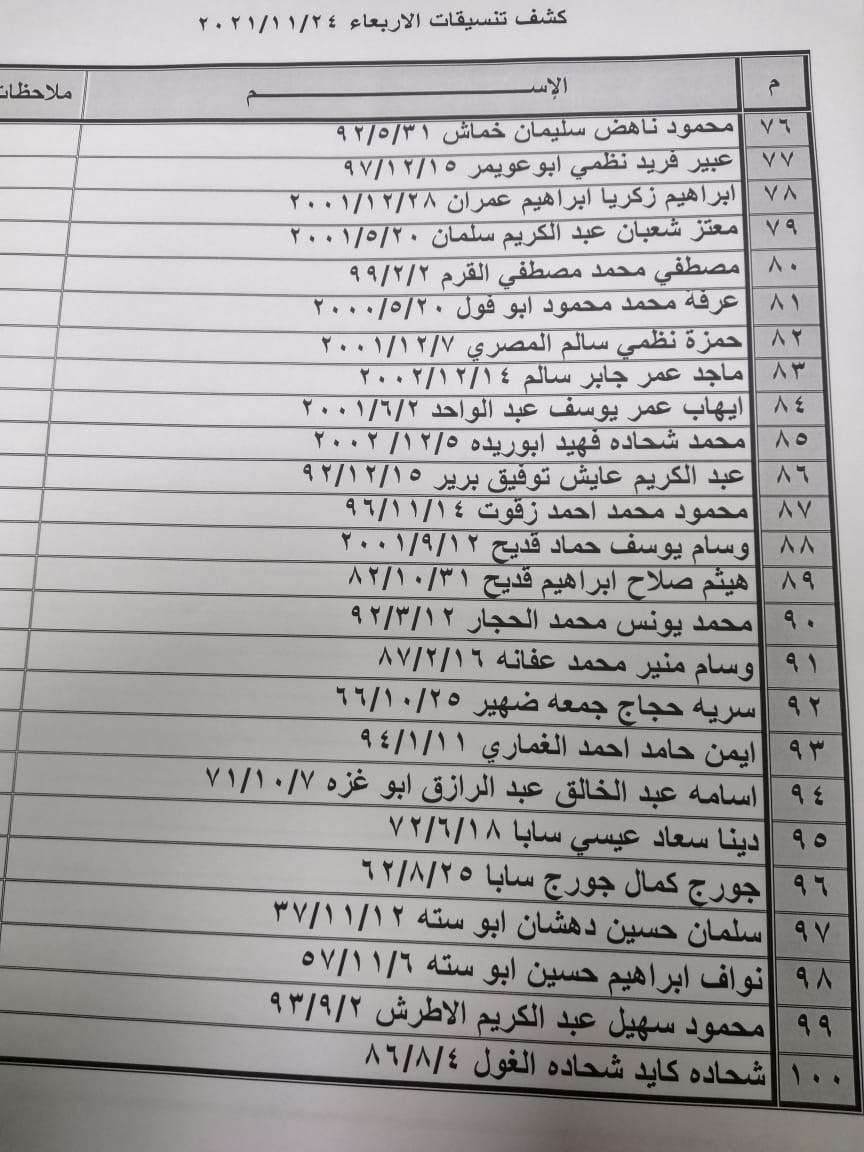 كشف تنسيقات الاربعاء ٢٠٢١/١١/٢٤
م الإســــــم ملاحظات
٧٦ محمود ناهض سليمان خماش ٩٢/٥/٣١
٧٧ عبير فريد نظمي ابوعويمر ٩٧/١٢/١٥
٧٨ ابراهيم زكريا ابراهيم عمران ٢٠٠١/١٢/٢٨
٧٩ معتز شعبان عبد الكريم سلمان ٢٠٠١/٥/٢٠
٨٠ مصطفي محمد مصطفي القرم ٩٩/٢/٢
٨١ عرفة محمد محمود ابو فول ٢٠٠٠/٥/٢٠
٨٢ حمزة نظمي سالم المصري ٢٠٠١/١٢/٧
٨٣ ماجد عمر جابر سالم ٢٠٠٢/١٢/١٤
٨٤ ايهاب عمر يوسف عبد الواحد ٢٠٠١/٦/٢
٨٥ محمد شحاده فهيد ابوريده ٢٠٠٢ /١٢/٥
٨٦ عبد الكريم عايش توفيق برير ٩٢/١٢/١٥
٨٧ محمود محمد احمد زقوت ٩٦/١١/١٤
٨٨ وسام يوسف حماد قديح ٢٠٠١/٩/١٢
٨٩ هيثم صلاح ابراهيم قديح ٨٢/١٠/٣١
٩٠ محمد يونس محمد الحجار ٩٢/٣/١٢
٩١ وسام منير محمد عفانه ٨٧/٢/١٦
٩٢ سريه حجاج جمعه ضهير ٦٦/١٠/٢٥
٩٣ ايمن حامد احمد الغماري ٩٤/١/١١
٩٤ اسامه عبد الخالق عبد الرازق ابو غزه ٧١/١٠/٧
٩٥ دينا سعاد عيسي سابا ٧٢/٦/١٨
٩٦ جورج كمال جورج سابا ٦٢/٨/٢٥
٩٧ سلمان حسين دهشان ابو سته ٣٧/١١/١٢
٩٨ نواف ابراهيم حسين ابو سته ٥٧/١١/٦
٩٩ محمود سهيل عبد الكريم الاطرش ٩٣/٩/٢
١٠٠ شحاده كايد شحاده الغول ٨٦/٨/٤